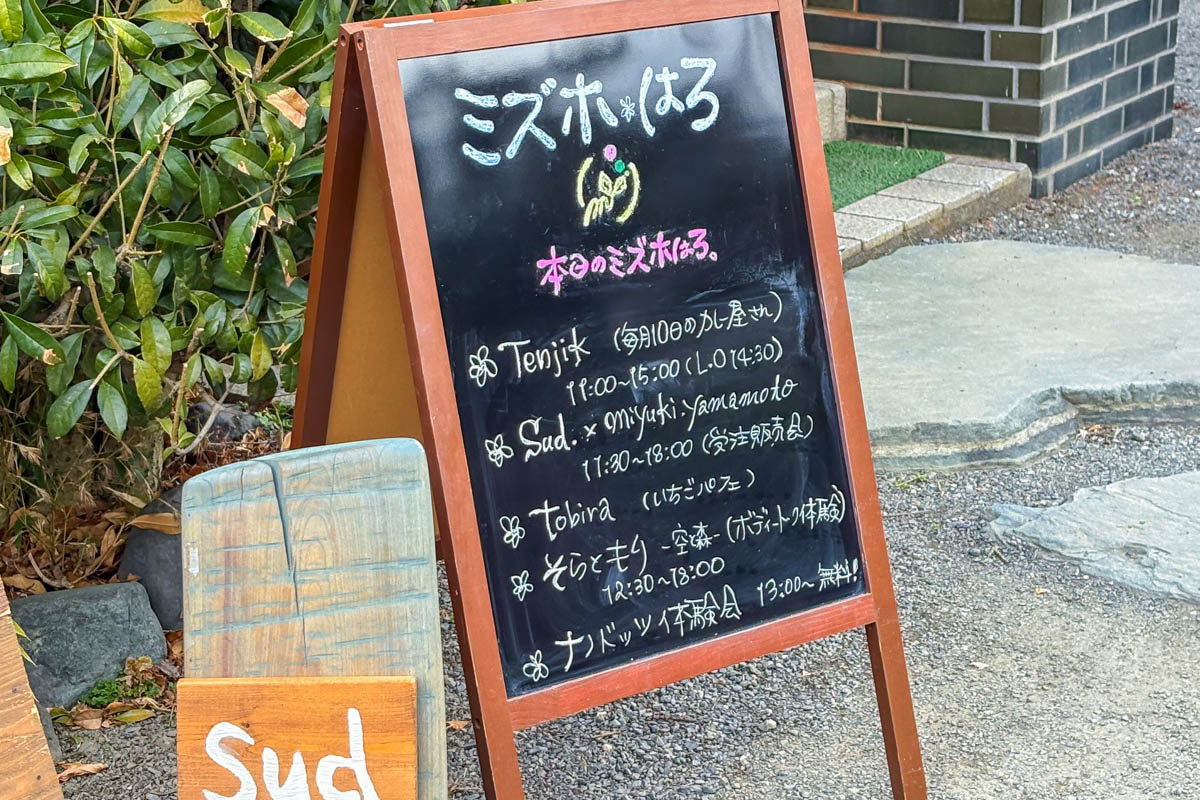 ミズホ*はる
本日のミズホはる。
Tenjik (毎月10日のカレー屋さん)
11:00~15:00 (L.O 14:30)
Sud. × miyuki.yamamoto
11:30~18:00 (受注販売会)
tobira (いちごパフェ)
そらともり -空と森- (ボディートーク体験)
12:30~18:00
ナノドッツ体験会 13:00~ 無料!
Sud